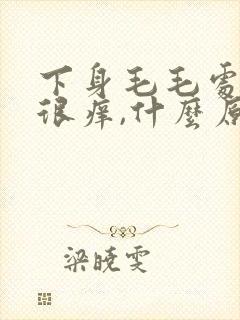 下身毛毛處
很痒,什麼原
梁曉雯